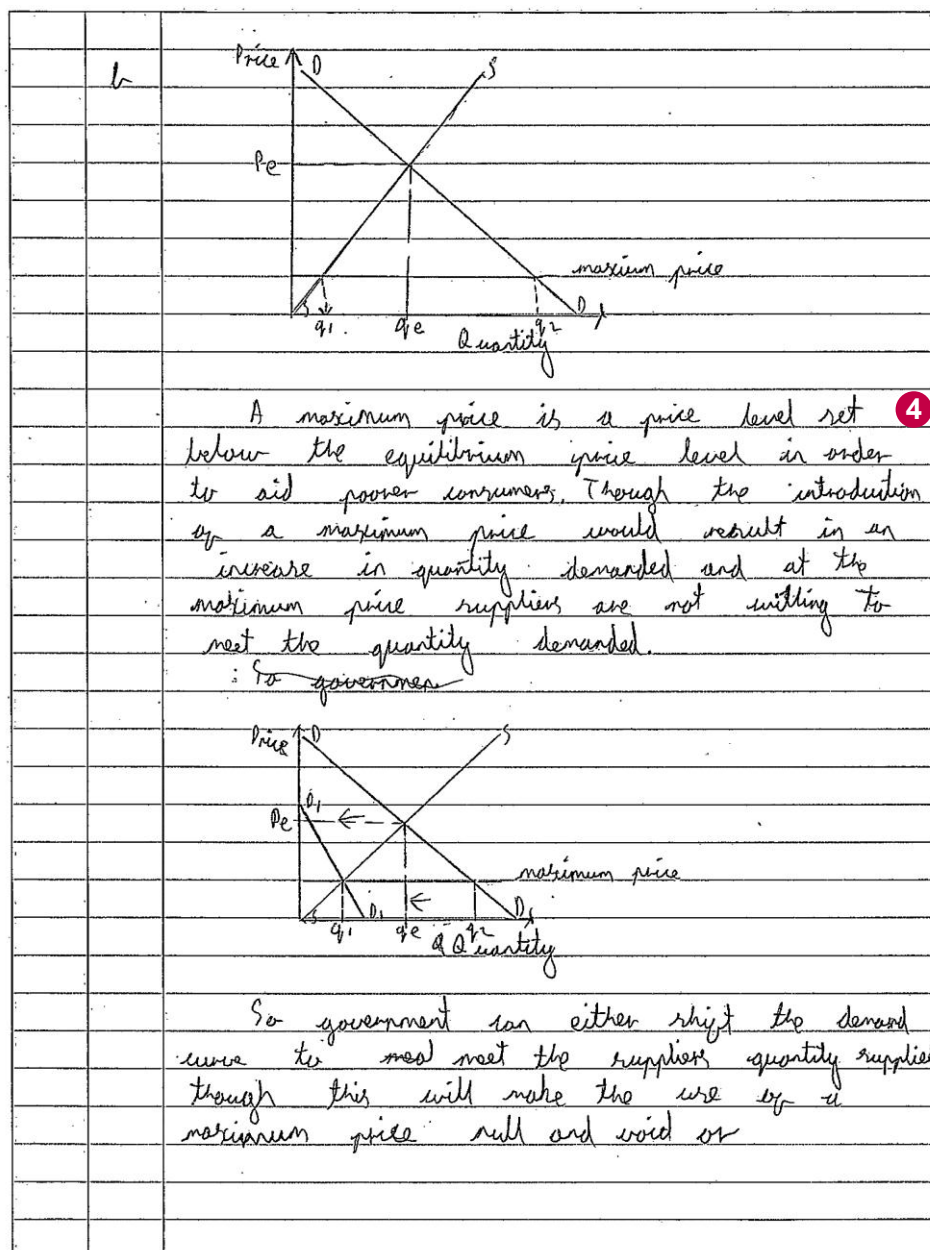 b
Price
D
S
Pe
maxium price
S
D
q1
qe
q2
Quantity
A maximum price is a price level set
4
below the equilibrium price level in order
to aid poorer consumers. Though the introduction
of a maximum price would result in an
increase in quantity demanded and at the
maximum price suppliers are not willing to
meet the quantity demanded.
: So governmen
Price
D
S
D1
Pe
maximum price
S
D1
D
q1
qe
q2
Q Quantity
So government can either shift the demand
curve to meal meet the suppliers quantity supplied
though this will make the use of a
maximum price null and void or